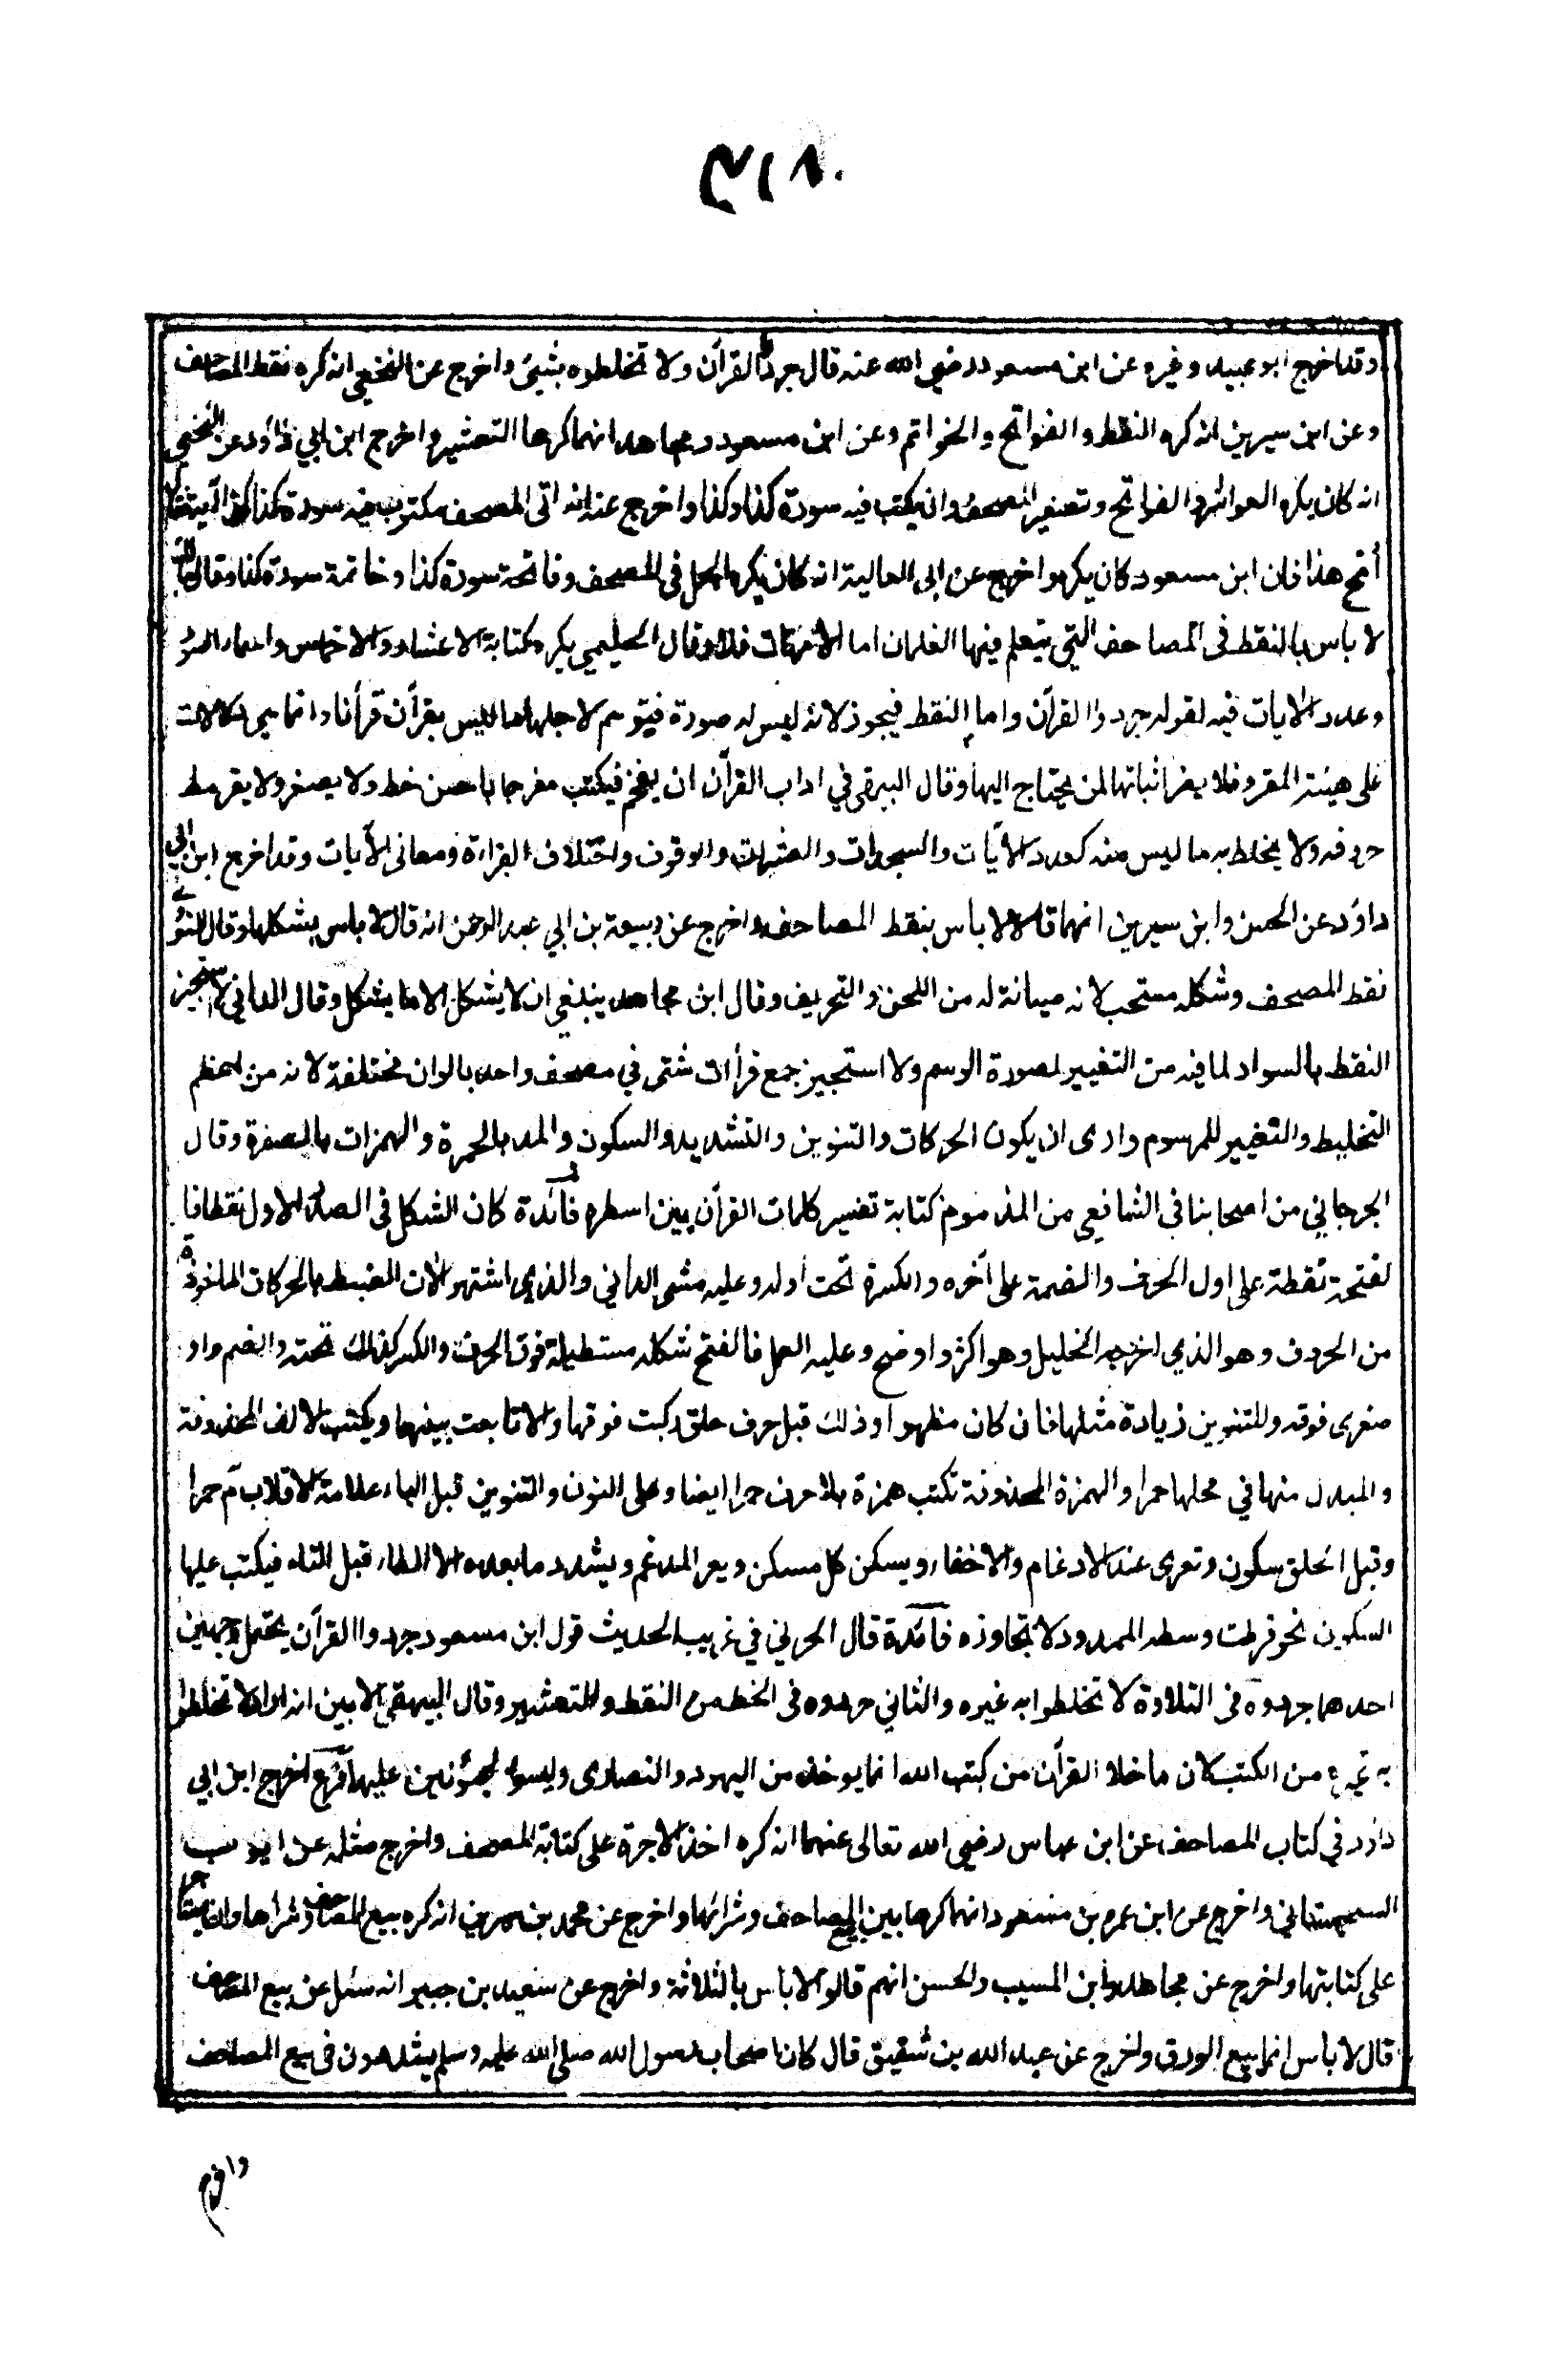 وقد اخرج ابو عبيد وغيره عن ابن مسعود رضي الله عنه قال جردوا القرآن ولا تخلطوه بشيئ واخرج عن النخعي انه كره نقط المصاحف
وعن ابن سيرين انه كره النقط والفواتح والخواتم وعن ابن مسعود ومجاهد انهما كرها التعشير واخرج ابن ابي داؤد عن النخعي
انه كان يكره العواشر والفواتح وتصغير المصحف وان يكتب فيه سورة كذا وكذا واخرج عنه انه اتى المصحف مكتوب فيه سورة كذا كذا آية فقال
أمح هذا فان ابن مسعود كان يكره واخرج عن ابى العالية انه كان يكره الجمل فى المصحف وفاتحة سورة كذا وخاتمة سورة كذا وقال مالك
لا باس بالنقط فى المصاحف التي يتعلم فيها الغلمان اما الامهات فلا وقال الحليمي يكره كتابة الاعشار والاخماس واسماء السو
وعدد الايات فيه لقوله جردوا القرآن واما النقط فيجوز لانه ليس له صورة فيتوهم لاجلها ما ليس بقرآن قرأنا وانما هى دلالات
على هيئة المقرو فلا يضر اثباتها لمن يحتاج اليها وقال البيهقى في اداب القرآن ان يفخم فيكتب مفرجا باحسن خط ولا يصغر ولا يقرمط
حروفه ولا يخلط به ما ليس منه كعدد الآيات والسجدات والعشرات والوقوف واختلاف القراءة ومعانى الآيات وقد اخرج ابن ابي
داؤد عن الحسن وابن سيرين انهما قالا لا باس بنقط المصاحف واخرج عن ربيعة بن ابي عبد الرحمن انه قال لا باس بشكلها وقال النووي
نقط المصحف وشكله مستحب لانه صيانة له من اللحن والتحريف وقال ابن مجاهد ينبغي ان لا يشكل الا ما يشكل وقال الداني لا استجيز
النقط بالسواد لما فيه من التغيير لصورة الرسم ولا استجيز جمع قرأات شتى في مصحف واحد بالوان مختلفة لانه من اعظم
التخليط والتغيير للمرسوم وارى ان يكون الحركات والتنوين والتشديد والسكون والمد بالحمرة والهمزات بالصفرة وقال
الجرجاني من اصحابنا في الشافعي من المذموم كتابة تفسير كلمات القرآن بين اسطره فائدة كان الشكل فى الصدر الاول نقطا فا
لفتحة نقطة على اول الحرف والضمة على آخره والكسرة تحت اوله وعليه مشى الداني والذي اشتهر الان الضبط بالحركات الماخوذة
من الحروف وهو الذي اخرجه الخليل وهو اكثر واوضح وعليه العمل فالفتح شكله مستطيلة فوق الحرف والكسر كذلك تحته والضم واو
صغرى فوقه وللتنوين زيادة مثلها فان كان مظهرا وذلك قبل حرف حلق ركبت فوقها والا تابعت بينهما ويكتب الالف المحذوفة
والمبدل منها في محلها حمرا والهمزة المحذوفة تكتب همزة بلا حرف حمرا ايضا وعلى النون والتنوين قبل الباء علامة الاقلاب م حمرا
وقبل الحلق سكون وتعرى عند الادغام والاخفاء ويسكن كل مسكن ويعر المدغم ويشدد ما بعده الا الطاء قبل التاء فيكتب عليها
السكون نحو فرطت وسطه الممدود لا تجاوزه فائدة قال الحربي في غريب الحديث قول ابن مسعود جردوا القرآن يحتمل وجهين
احدهما جردوه فى التلاوة لا تخلطوا به غيره والثاني جردوه فى الخط من النقط والتعشير وقال البيهقي الابين انه اراد لا تخلطوا
به غيره من الكتب لان ما خلا القرآن من كتب الله انما يوخذ من اليهود والنصارى وليسوا بمئونين عليها فرع اخرج ابن ابي
داؤد في كتاب المصاحف عن ابن عباس رضي الله تعالى عنهما انه كره اخذ الاجرة على كتابة المصحف واخرج مثله عن ايوب
السجستاني واخرج عن ابن عمر بن مسعود انهما كرها بيع المصاحف وشرائها واخرج عن محمد بن سيرين انه كره بيع المصاحف وشراها وان يستاجر
على كتابتها واخرج عن مجاهد وابن المسيب والحسن انهم قالوا لا باس بالثلاثة واخرج عن سعيد بن جبير انه سئل عن بيع المصاحف
قال لا باس انما يبيع الورق واخرج عن عبد الله بن شقيق قال كان اصحاب رسول الله صلى الله عليه وسلم يشددون فى بيع المصاحف